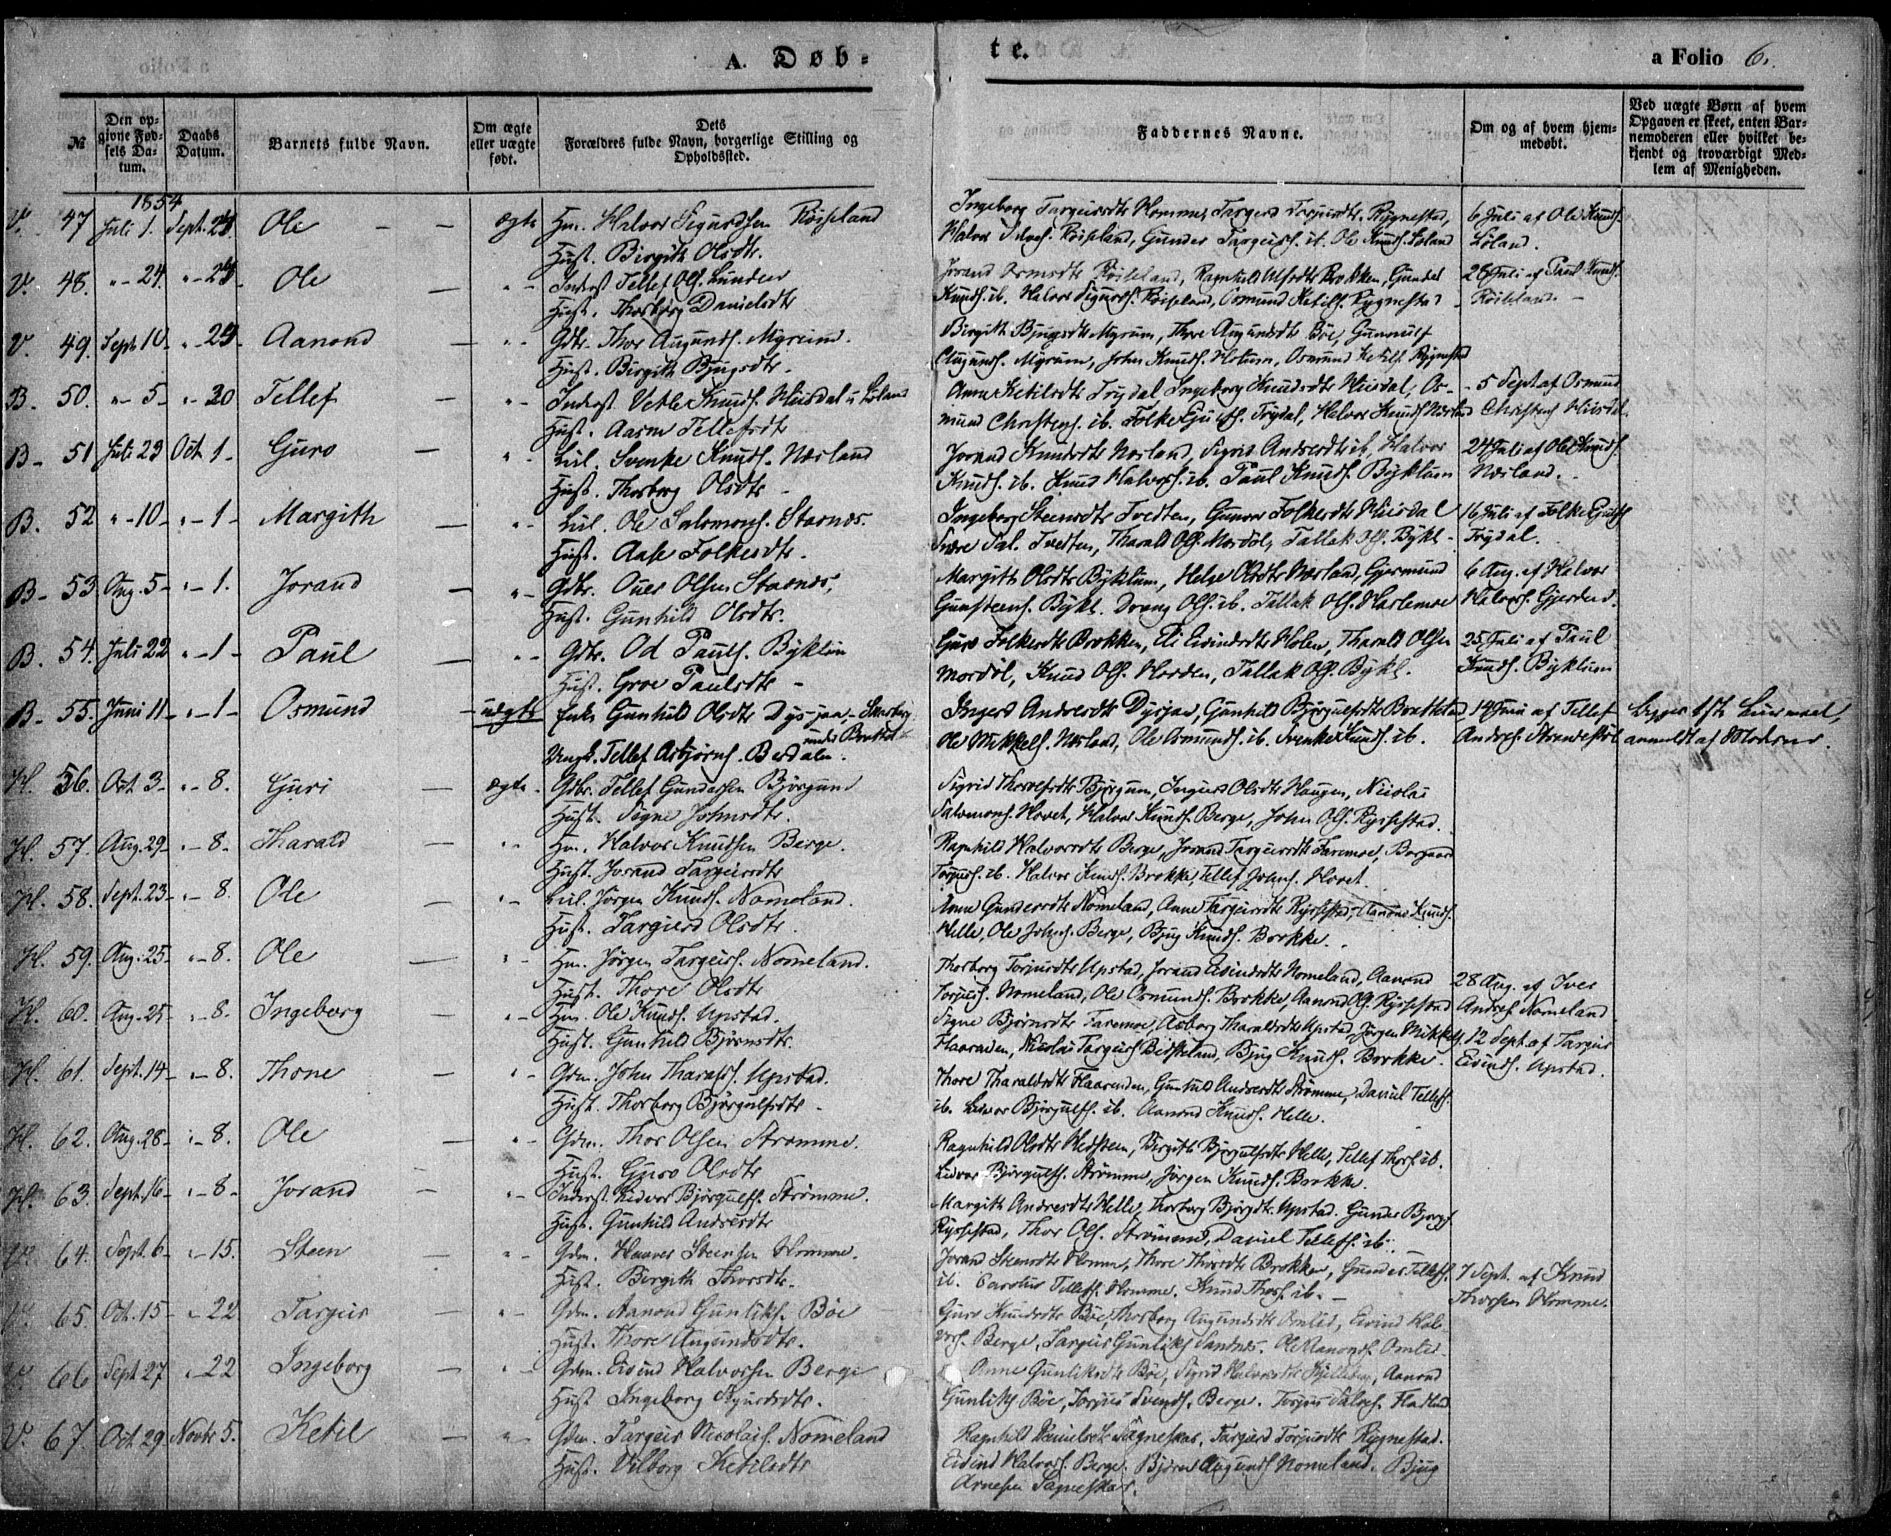 A. Døb-
te.
a Folio 6.
№
Den opgivne Fødsels Datum.
Daabs Datum.
Barnets fulde Navn.
Om ægte eller uægte født.
Dets Forældres fulde Navn, borgerlige Stilling og Opholdssted.
Faddernes Navne.
Om og af hvem hjemmedøbt.
Ved uægte Børn af hvem Opgaven er skeet, enten Barnemoderen eller hvilket bekjendt og troværdigt Medlem af Menigheden.
1854
V. 47 Juli 1. Sept. 24. Ole — ægte Hm. Halvor Sigurdsen Røiseland
Hust. Birgith Olsdtr.
Ingeborg Targeirsdtr Homme, Targerd Torjusdtr. Rygnestad,
Halvor Røiseland, Gunder Targeirs. ib. Ole Knuds. Løland
6 Juli af Ole Knuds.
Løland.
V. 48. " - 24. " - 24. Ole — " - Inderst Tellef Ols. Lunden
Hust. Thorborg Danielsdtr
Jorand Osmsdtr Røiseland, Ragnhild Brokken, Gundel
Knuds. ib. Halvor Sigurds. Røiseland, Osmund Ketils. Rygnestad
28 Juli af Paul Knuds.
Røiseland. -
V. 49. Sept. 10. " - 24. Aanond — " - Gdbr. Thor Augunds. Myrum.
Hust. Birgith Bjugsdtr.
Birgith Bjugsdtr Myrum, Thore Augundsdtr Bøe, Gunnulf
Augunds. Myrum, John Knuds. Hotum, Osmund Ketils. Rygnestad
B. 50. " - 5 - " - 30 Tellef — " - Inderst Vetle Knuds. Huisdal u. Løland
Hust. Aasne Tellefsdtr
Anne Ketilsdtr Trydal, Ingeborg Knudsdtr Huisdal, Os-
mund Christens. ib. Folke Trydal, Halvor Knuds. Nærland
- 5 Sept. af Osmund
Christens. Huisdal.
B - 51 Juli 23 Oct. 1 - Guro — " - Svenke Knuds. Nærland
Hust. Thorborg Olsdtr -
Jorand Knudsdtr Nærland, Sigrid Andersdtr ib, Halvor
Knuds. ib. Knud Halvors. ib. Paul Knuds. Byklum
24 Juli af Ole Knuds.
Nærland.
B. 52 " - 10 - " - 1 - Margith — " - Ole Salomons. Stavnes.
Hust. Aase Folkesdtr.
Ingeborg Steensdtr Tvedten, Gunvor Folkesdtr Huisdal
Sal. Tvedten, Tharald Ols. Mordøl, Tallak Ols. Bykl.
16 Juli af Folke
Trydal.
B - 53 Aug. 5 - " - 1. Jorand — " - Gdbr. Olsen Stavnes,
Hust. Gunhild Olsdtr.
Margith Olsdtr Byklum, Helge Olsdtr Nærland, Gjermund
Gunsteens. Bykl. Dreng Ols. ib. Tallak Ols. Hartemoe
6 Aug. af Halvor
Halvors. Gjerden.
B. 54. Juli 22 " - 1 - Paul — " - Gdbr. Od Pauls. Byklum
Hust. Groe Paulsdtr -
Guro Folkesdtr Brokken, Eli Eivindsdtr Holen, Tharald Olsen
Mordøl, Knud Ols. Horden, Tallak Ols. Bykl.
25 Juli af Paul
Knuds. Byklum
B - 55. Juni 11 - " - 1 - Osmund - uægte Enke Gunhild Olsdtr Dysjaa
under
Ungk. Tellef Asbjørns. Berdalen.
Ingerd Andersdtr Dysjaa, Gunhild Bjørgulfsdtr Bratteland
Ole Mikkels. Nærland, Ole Osmunds. ib. Svenke Knuds. ib.
14 Juni af Tellef
Anders. Strandestøl
Begges 1ste Leiermaal,
anmeldt af Moderen.
Hl. 56. Oct. 3 - " - 8. Guri — ægte - Gdbr. Tellef Gundersen Bjørgum
Hust. Signe Johnsdtr.
Sigrid Thorolfsdtr Bjørgum, Ingerd Olsdtr Haugen, Nicolai
Salomons. Hovet, Halvor Knuds. Berge, John Ols. Rysstad.
Hl. 57. Aug. 29 - " - 8 - Tharald — " - Hm. Halvor Knudsen Berge.
Hust. Jorand Targeirsdtr
Ragnhild Halvorsdtr Berge, Jorand Targeirsdtr Faremoe,
Torjus. ib. Halvor Knuds. Brokke, Tellef Johns. Hovet.
Hl. 58. Sept. 23 - " - 8. Ole — " - Jørgen Knuds. Nomeland.
Hust. Targierd Olsdtr.
Anne Gundersdtr Nomeland, Anne Targeirsdtr Rysstad, Aanond Knuds.
Helle, Ole Johns. Berge, Bjug Knuds. Brokke.
Hl. 59. Aug. 25 - " - 8. Ole — " - Hm. Jørgen Targeirs. Nomeland.
Hust. Thore Olsdtr
Thorborg Torjusdtr Upstad, Jorand Eivindsdtr Nomeland, Aanond
Torjus. Nomeland, Ole Osmunds. Brokke, Aanond Ols. Rysstad
28 Aug. af Iver
Anders. Nomeland
Hl. 60. Aug. 25 - " - 8. Ingeborg — " - Hm. Ole Knuds. Upstad.
Hust. Gunhild Bjørnsdtr.
Signe Bjørnsdtr Faremoe, Aaborg Tharaldsdtr Upstad, Jørgen Mikkels.
Flaarenden, Nicolai Targeirs. Besteland, Bjug Knuds. Brokke.
12 Sept. af Targeir
Eivinds. Upstad.
Hl. 61. Sept. 14 - " - 8. Thone — " - Gdm. John Tharalds. Upstad.
Hust. Thorborg Bjørgulfsdtr -
Thore Tharaldsdtr Flaarenden, Gunhild Andersdtr Strømme, Daniel Tellefs.
ib. Leidvor Bjørgulfs. ib. Aanond Knuds. Helle.
Hl. 62. Aug. 28 - " - 8. Ole — " - Gdm. Thor Olsen Strømme.
Hust. Guro Olsdtr
Ragnhild Olsdtr Hedsteen, Birgith Bjørgulfsdtr Helle, Tellef Thors. ib.
Leidvor Bjørgulfs. Strømme, Jørgen Knuds. Brokke.
Hl. 63. Sept. 16 - " - 8 - Jorand — " - Inderst. Leidvor Bjørgulfs. Strømme.
Hust. Gunhild Andersdtr
Margith Andersdtr Helle, Thorborg Bjørgdtr. Upstad. Gunder Bjørgs.
Rysstad, Thor Ols. Strømme, Daniel Tellefs. ib.
V. 64. Sept. 6 - " - 15. Steen — " - Gdm. Haavor Steensen Homme.
Hust. Birgith Thorsdtr.
Joran Steensdtr Homme, Thore Thorsdtr Brokken, Gunder Tellefs.
ib. Carolus Tellefs. Homme. Knud Thors. ib. -
7 Sept. af Knud
Thorsen Homme.
V. 65. Oct. 15 - " - 22. Targeir — " - Gdm. Aanond Gunliks. Bøe
Hust. Thore Augundsdtr.
Guro Knudsdtr Bøe, Thorborg Augundsdtr Omlid, Eivind Hal-
vors. Berge, Targeir Gunliks. Sandnes. Ole Aanonds. Omlid.
V. 66 Sept. 27 " - 22 Ingeborg — " - Gdm. Eivind Halvorsen Berge
Hust. Ingeborg Sjurdsdtr.
Anne Gunliksdtr Bøe, Sigrid Halvorsdtr Kjelleberg, Aanond
Gunliks. Bøe, Torjus Svends. Berge. Torjus Salves. Flatland
V. 67. Oct. 29. Novbr 5. Ketil — " - Gdm. Targeir Nicolais. Nomeland
Hust. Vilborg Ketilsdtr
Ragnhild Danielsdtr Sagneskar, Targierd Torjusdtr Rygnestad.
Eivind Halvors. Berge. Bjørn Augunds. Nomeland. Bjug
Arnesen Sagneskar.